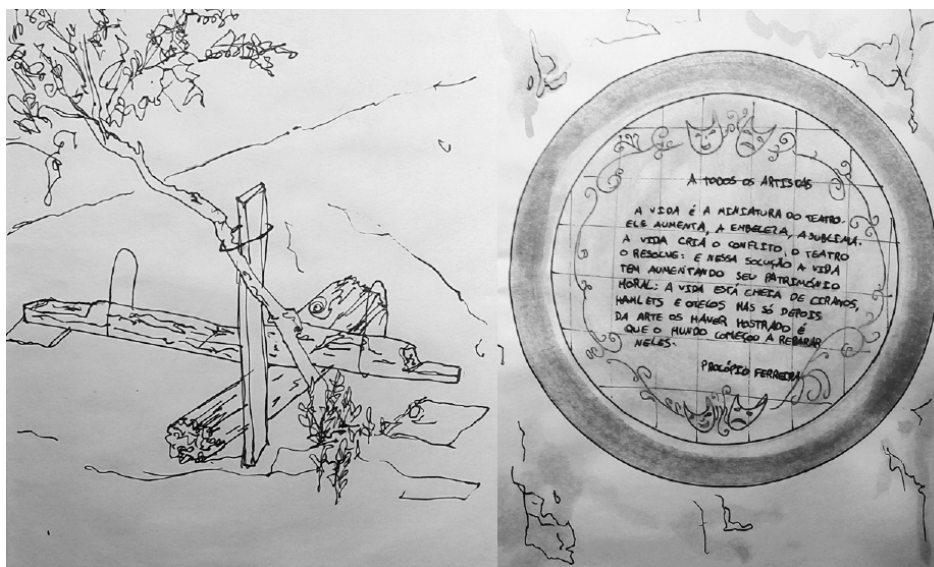 A TODOS OS ARTISTAS
A VIDA É A MINIATURA DO TEATRO.
ELE AUMENTA, A EMBELEZA, A SUBLIMA.
A VIDA CRIA O CONFLITO, O TEATRO
O RESOLVE: E NESSA SOLUÇÃO A VIDA
TEM AUMENTANDO SEU PATRIMÔNIO
MORAL: A VIDA ESTÁ CHEIA DE CIRANOS,
HAMLETS E OTELOS MAS SÓ DEPOIS
DA ARTE OS HAVER MOSTRADO É
QUE O MUNDO COMEÇOU A REPARAR
NELES.
PROCÓPIO FERREIRA